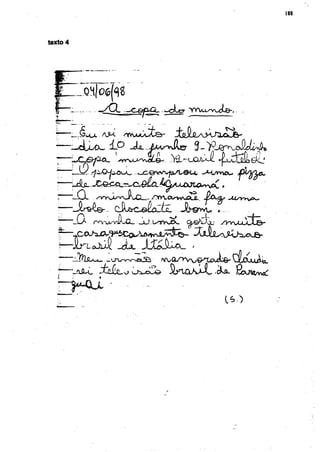 188
texto 4
04/06/98
A copa do mundo.
Eu vi muito televisão
dia 10 de junho 9-Ronaldinho
copa mundo Brasil futebol.
O papai comprou uma pizza
de coca-cola Guaraná.
A minha mamãe faz uma
bolo. chocolate bom.
A minha irmã gosta muito
televisão
Brasil da Itália.
Meu irmão namorado Cláudia
vei televisão Brasil da Paraná
guai
(S.)